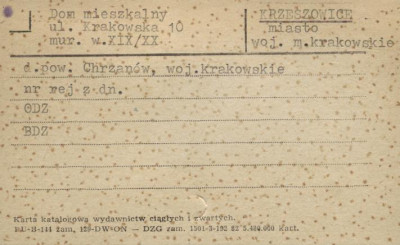 Dom mieszkalny
ul. Krakowska 10
mur. w.XIX/XX
KRZESZOWICE
miasto
woj. m.krakowskie
d.pow. Chrzanów, woj.krakowskie
nr rej z dn.
ODZ
BDZ
Karta katalogowa wydawnictw ciągłych i zwartych.
zam. DZG zam. 1301-3-192 62 Kart.